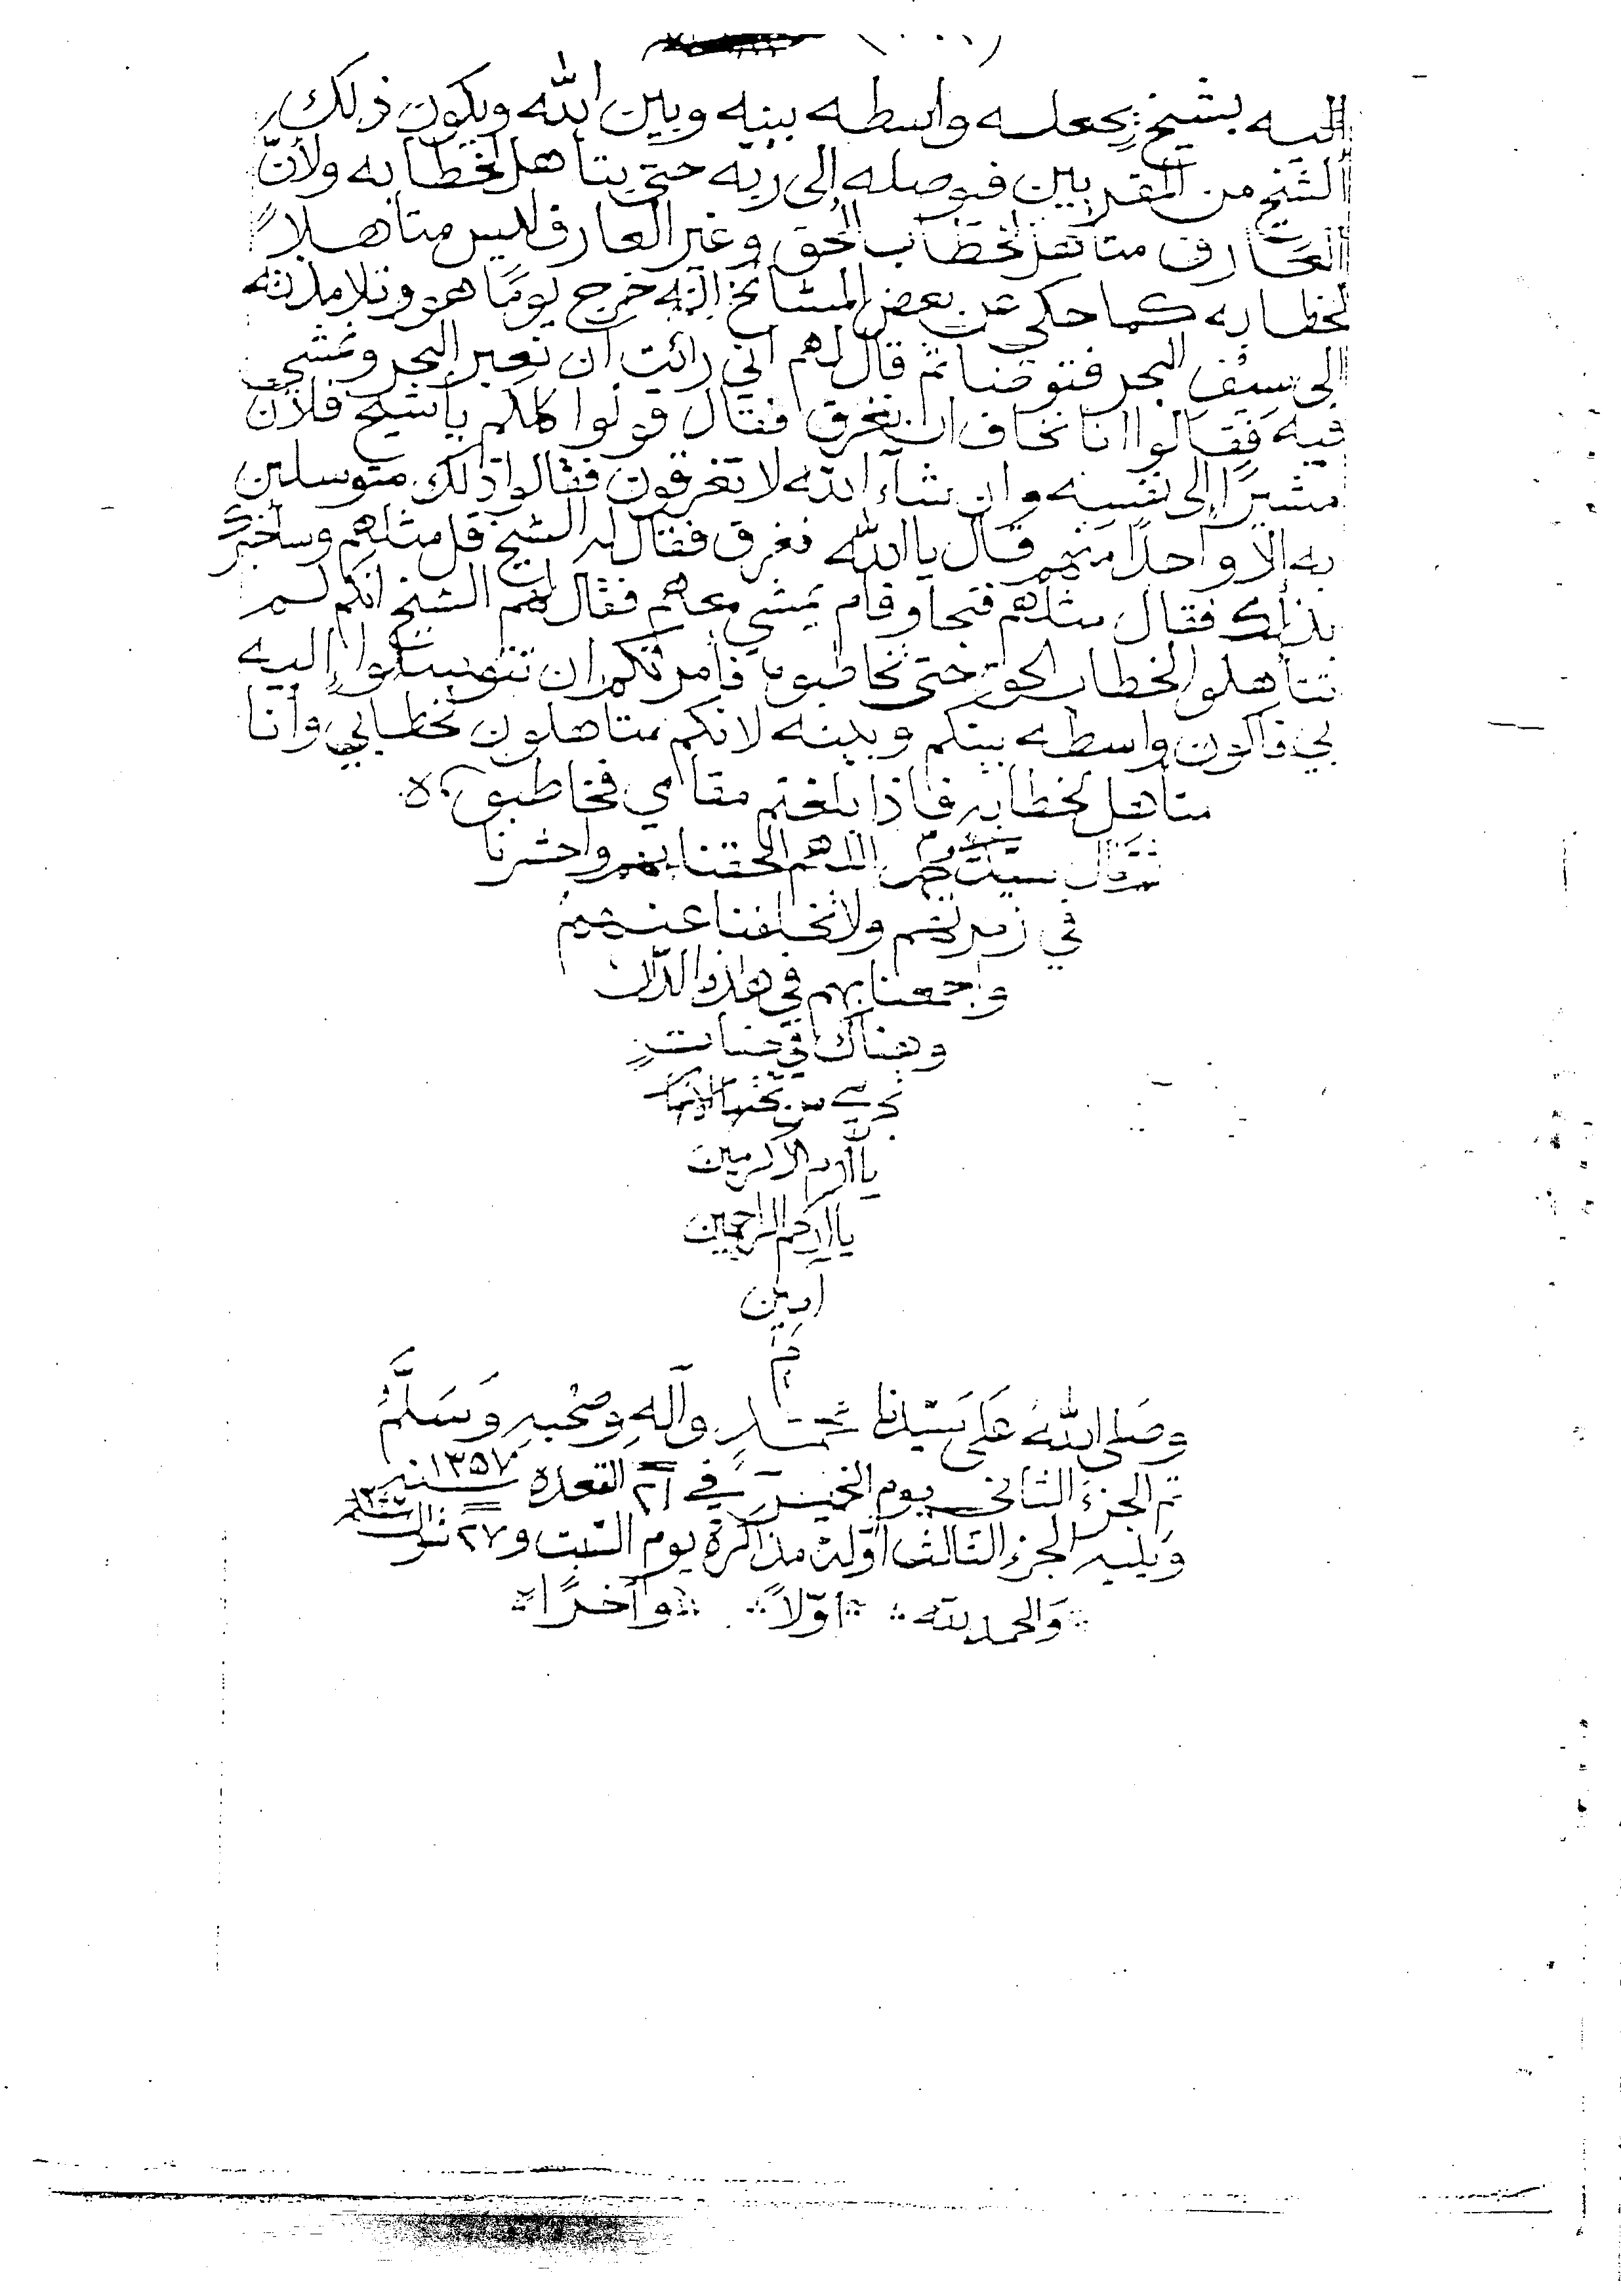 اليه بشيخ يجعله واسطه بينه وبين الله ويكون ذلك
الشيخ من المقربين فيوصله إلى ربه حتى يتأهل لخطابه ولأنّ
العارف متأهل لخطاب الحق وغير العارف ليس متاهلاً
لخطابه كما حكي عن بعض المشائخ انه خرج يومًا هو وتلامذته
إلى سِيْفِ البحر فتوضأ ثم قال لهم اني رأيت ان نعبر البحر ونمشي
فيه فقالوا انا نخاف ان نغرق فقال قولوا كلكم يا شيخ فلان
مشيرًا إلى نفسه وان شآء الله لا تغرقون فقالوا ذلك متوسلين
به إلا واحدًا منهم قال يا الله فغرق فقال له الشيخ قل مثلهم وسأخبرك
بذلك فقال مثلهم فنجا وقام يمشي معهم فقال لهم الشيخ انكم لم
تتأهلوا لخطاب الحق حتى تخاطبوه فأمرتكم ان تتوسلوا إليه
بي فأكون واسطه بينكم وبينه لانكم متاهلون لخطابي وأنا
متأهل لخطابه فاذا بلغتم مقامي فخاطبوه
ثم قال اللهم الحقنا بهم واحشرنا
في زمرتهم ولا تخلفنا عنهم
واجمعنا بهم في هذه الدار
وهناك في جنات
تجري من تحتها الأنهار
يا أكرم الأكرمين
يا ارحم الراحمين
آمين
تم
وصَلى اللهُ عَلى سَيّدنا محمّدٍ وآلهِ وصَحْبهِ وَسَلَّمْ
تم الجزءُ الثاني يوم الخميس في ٢١ القعدة سنه ١٣٥٧
وَيليه الجزء الثالث أوّلهُ مذاكرة يوم السّبت و٢٧ شوال
والحمد لله اوّلاً وآخرًا